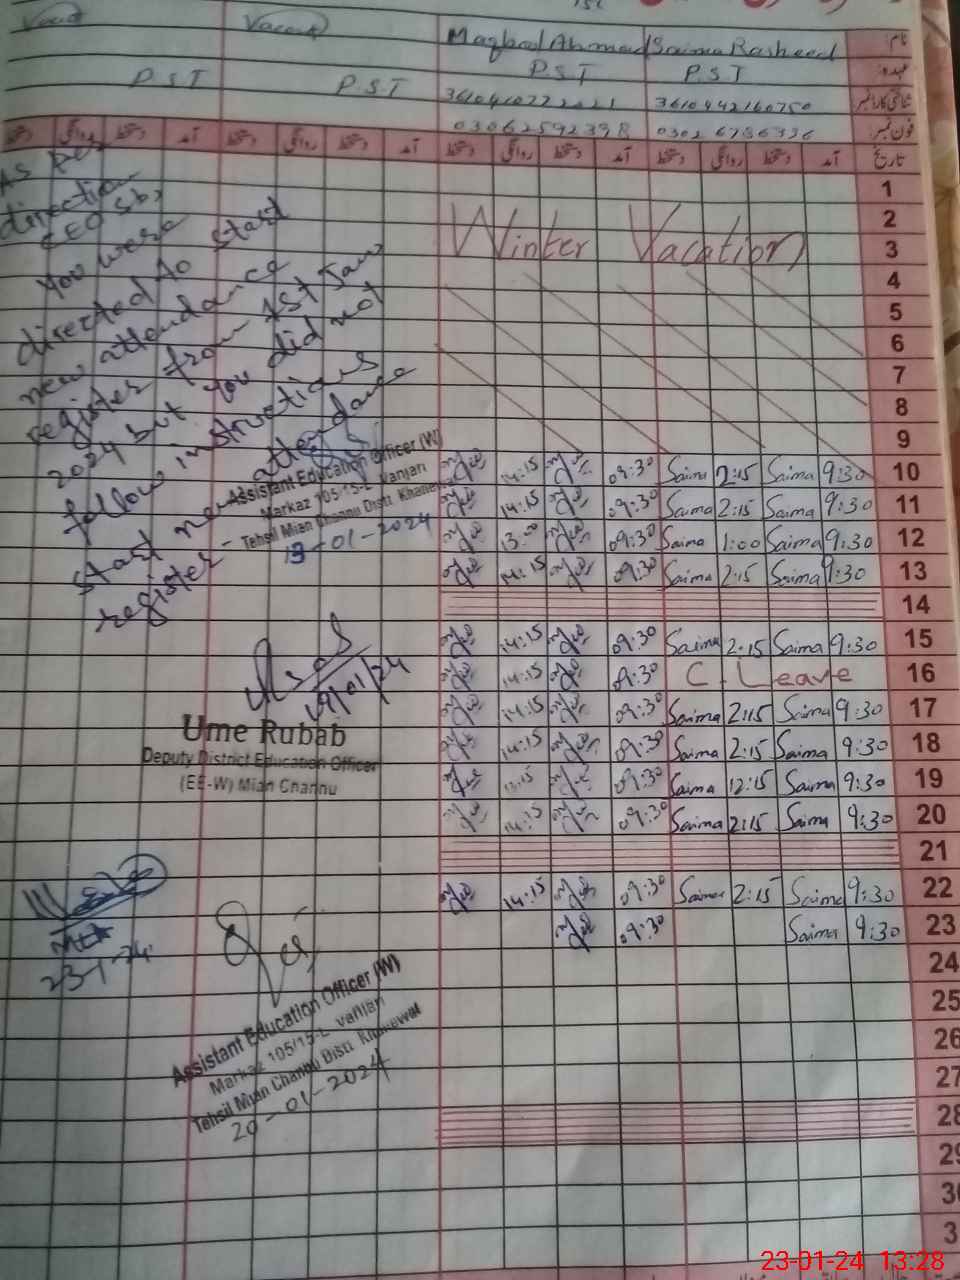 Vacant Maqbool Ahmad Saima Rasheed نام:
P.S.T P.S.T P.S.T P.S.T عہدہ:
3610442160750 شناختی کارڈ نمبر
03062592398 0302 6736336 فون نمبر:
دستخط روانگی دستخط آمد دستخط روانگی دستخط آمد دستخط روانگی دستخط آمد دستخط روانگی دستخط آمد تاریخ
1
2
Winter Vacation 3
4
5
6
7
8
9
14:15 09:30 Saima 2:15 Saima 9:30 10
14:15 09:30 Saima 2:15 Saima 9:30 11
13:00 09:30 Saima 1:00 Saima 9:30 12
14:15 09:30 Saima 2:15 Saima 9:30 13
14
14:15 09:30 Saima 2:15 Saima 9:30 15
14:15 09:30 C. Leave 16
14:15 09:30 Saima 2:15 Saima 9:30 17
14:15 09:30 Saima 2:15 Saima 9:30 18
09:30 Saima 12:15 Saima 9:30 19
14:15 09:30 Saima 2:15 Saima 9:30 20
21
14:15 09:30 Saima 2:15 Saima 9:30 22
09:30 Saima 9:30 23
24
25
26
27
28
29
30
3
As per
direction
CEO Sb,
you were
directed to start
new attendance
register from 1st Jan
2024 but you did not
follow instructions
start new attendance
register
Assistant Education Officer (W)
Markaz 105/15-L Vanjari
Tehsil Mian Channu Distt. Khanewal
13-01-2024
19/01/24
Ume Rubab
Deputy District Education Officer
(EE-W) Mian Channu
23-1-24
Assistant Education Officer (W)
Markaz 105/15-L Vanjari
Tehsil Mian Channu Distt. Khanewal
20-01-2024
23-01-24 13:28